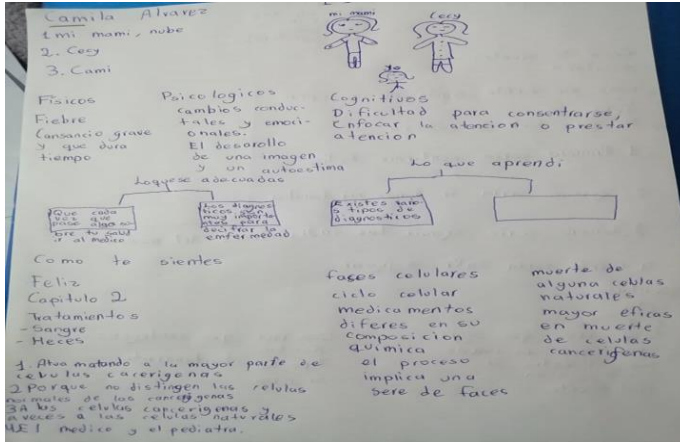 Camila Alvarez
1 mi mami, nube
2. Cecy
3. Cami
mi mami
Cecy
yo
Físicos
Fiebre
Cansancio grave
y que dura
tiempo
Psicologicos
cambios conduc-
tales y emoci-
onales.
El desorollo
de una imagen
y un autoestima
Cognitivos
Dificultad para consentrarse,
Enfocar la atencion o prestar
atencion
adecuadas
Que cada
vez que
pase algo so-
bre tu salud
ir al medico
Los diagnos-
ticos son
muy import
para
decifrar la
emfermedad
Lo que aprendi
Existes
s tipos de
diagnosticos
Como te sientes
Feliz
Capitulo 2
Tratamientos
- Sangre
- Heces
1. matando a la mayor parte de
celulas cacerigenas
2 Porque no distingen las celulas
normales de las cancerigenas
3 A las celulas cancerigenas y
aveces a las celulas naturales
4 El medico y el pediatra.
fases celulares
ciclo celular
medicamentos
diferes en su
composicion
química
el proceso
implica una
sere de faces
muerte de
alguna celulas
naturales
mayor eficas
en muerte
de celulas
cancerigenas